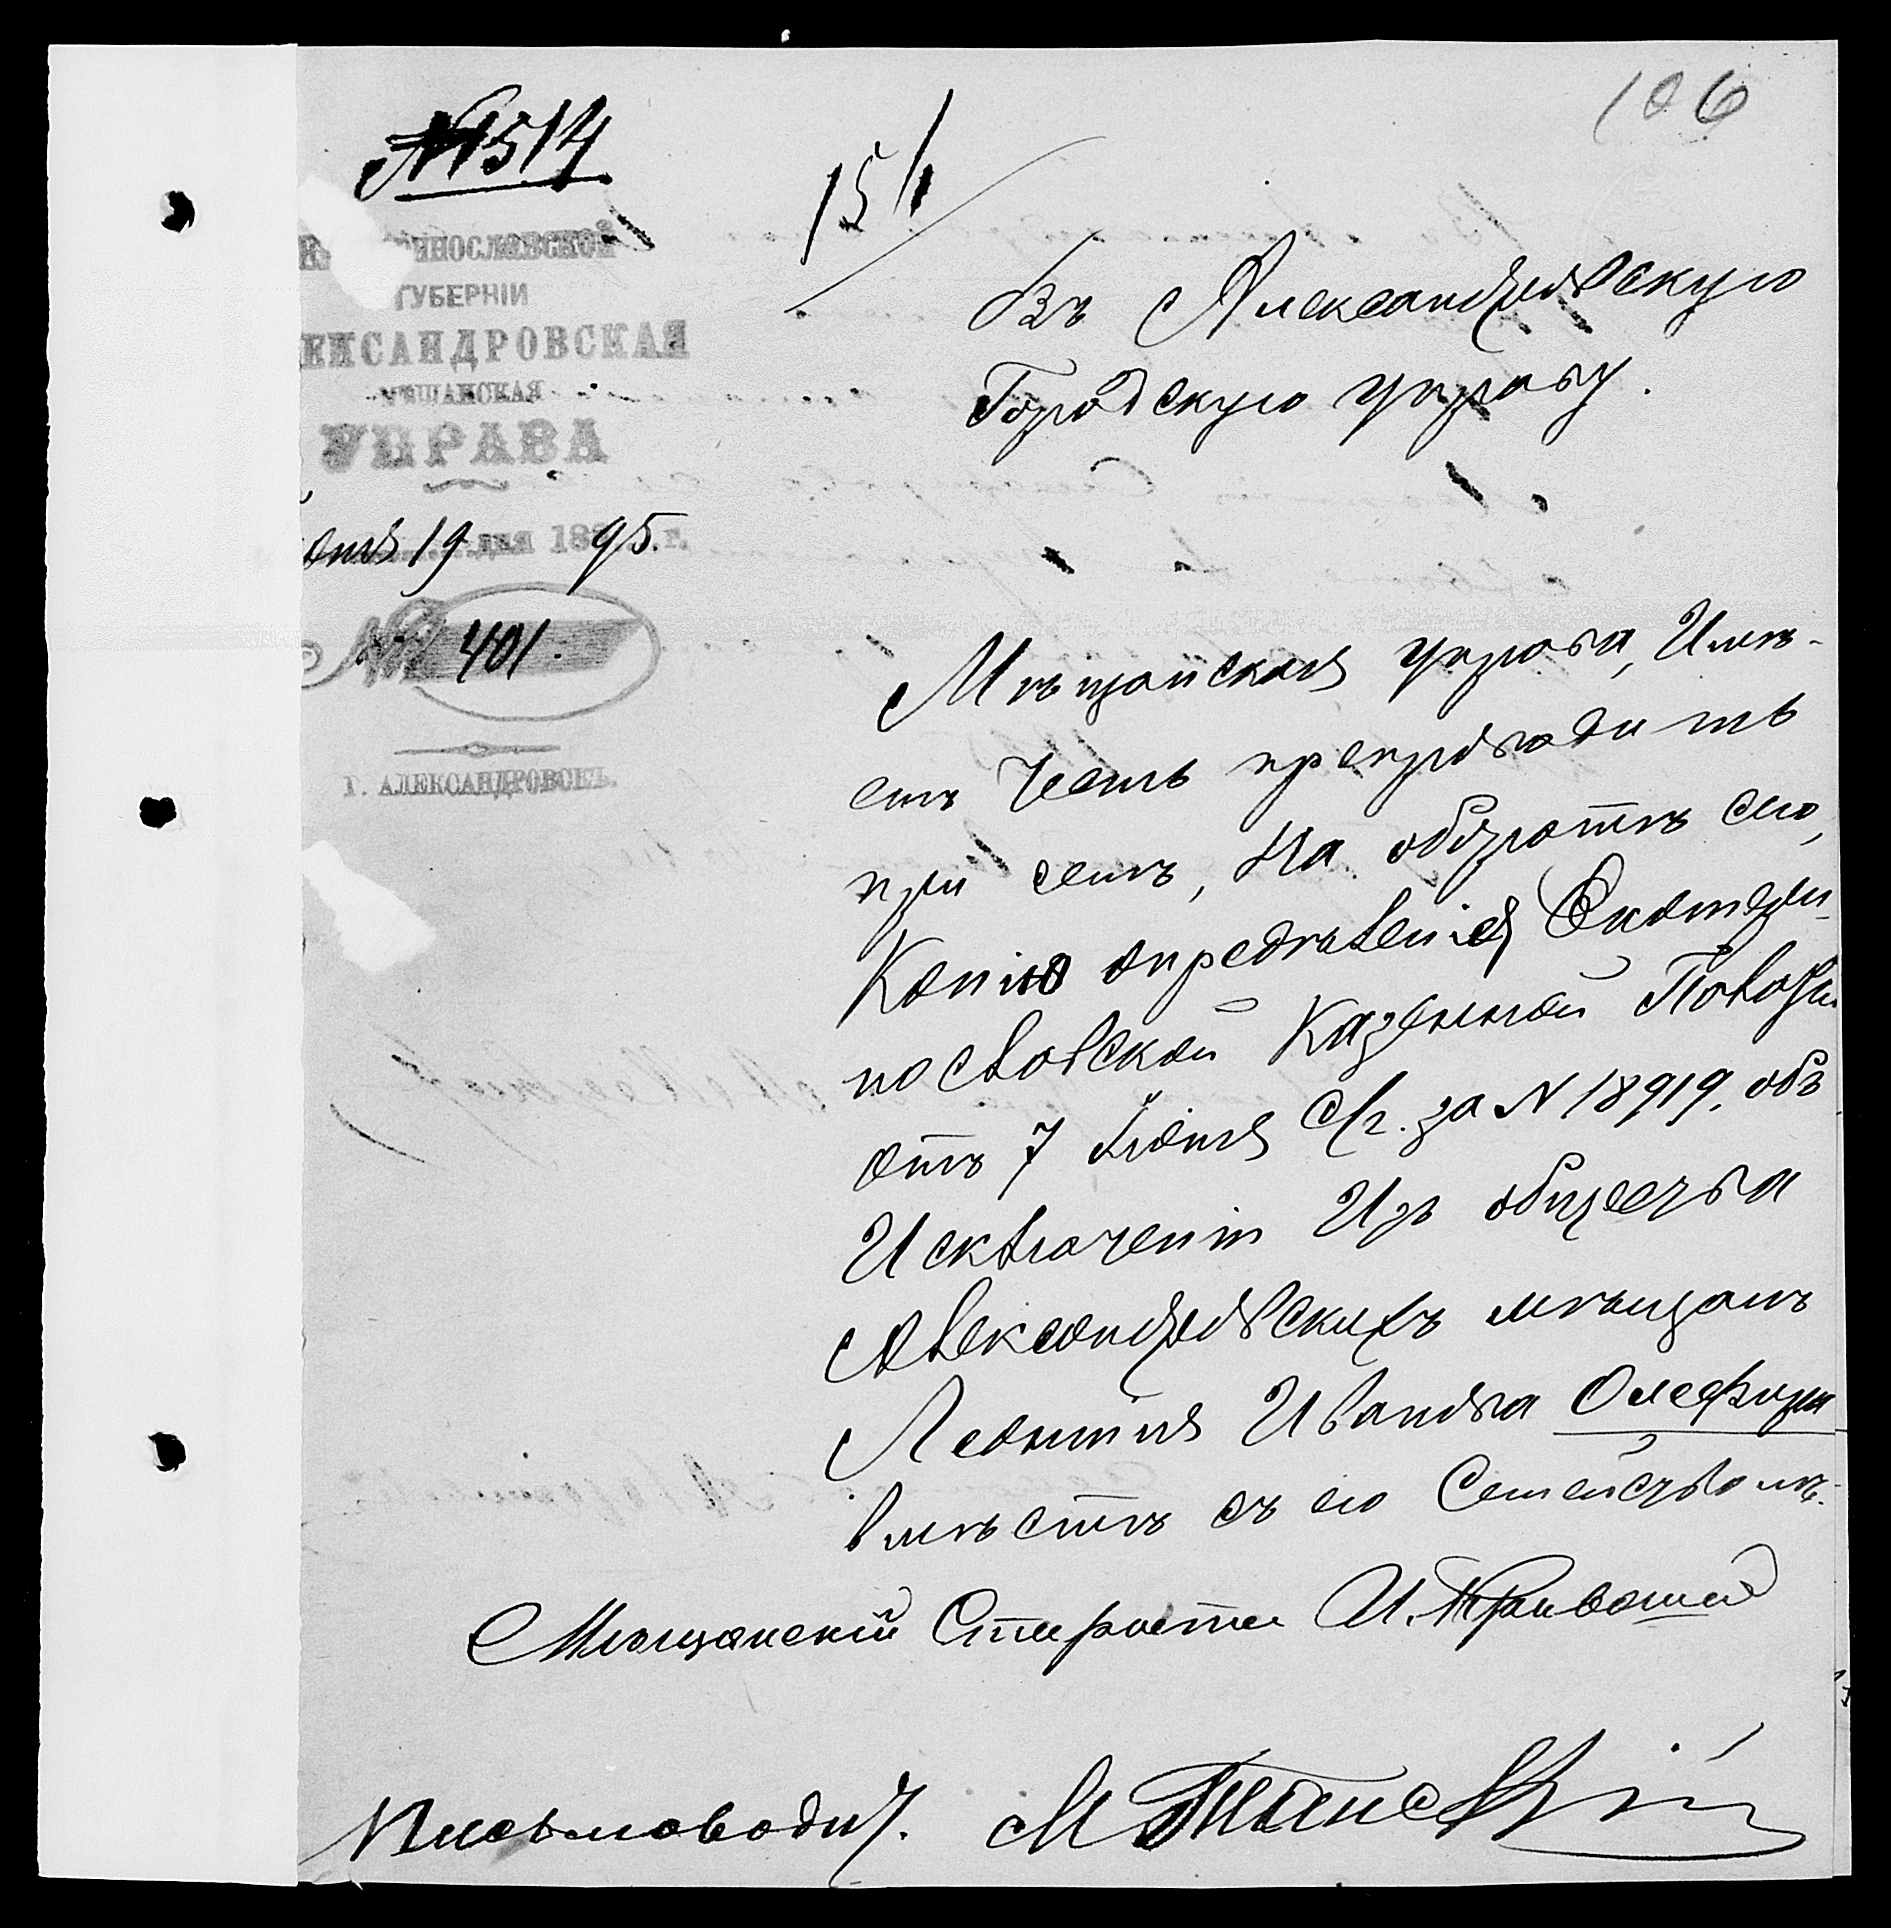 106
№ 1514
15/
ЕКАТЕРИНОСЛАВСКОЙ
ГУБЕРНІИ
АЛЕКСАНДРОВСКАЯ
МѢЩАНСКАЯ
УПРАВА
19 дня 1895 г.
№ 401.
Г. АЛЕКСАНДРОВСКЪ.
Въ Александровскую
Городскую управу.
Мѣщанская управа, Имѣ-
етъ Честь препроводить
при семъ, На оборотѣ сего,
Копію опредѣленія Екатери-
нославской Казенной Палаты
отъ 7 Іюня с/г. за N 18919. объ
Исключеніи Изъ общества
Александровскихъ мѣщанъ
Леонтія Иванова Олефира
вмѣстѣ съ его Семействомъ.
Мѣщанскій Староста И.
Письмоводит. М